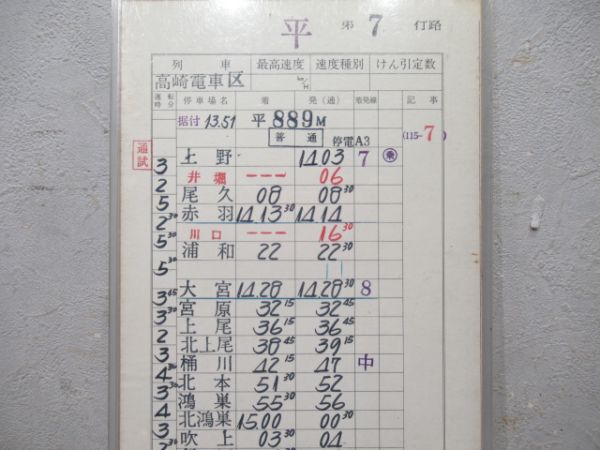 平 第 7 行路
列車 最高速度 速度種別 けん引定数
高崎電車区 km/H
運転時分 停車場名 着 発(通) 着発線 記事
据付 13.51 平 889M
普通 停電A3 (115-7)
通試
3 上野 14 03 7 乗
2 井堀 --- 06
5 尾久 08 08 30
2 30 赤羽 14.13 30 14.14
5 30 川口 --- 16 30
浦和 22 22 30
5 30
3 45 大宮 14.28 14.28 30 8
3 30 宮原 32 15 32 45
2 上尾 36 15 36 45
3 北上尾 38 45 39 15
4 30 桶川 42 15 47 中
3 30 北本 51 30 52
4 鴻巣 55 30 56
3 北鴻巣 15.00 00 30
吹上 03 30 04